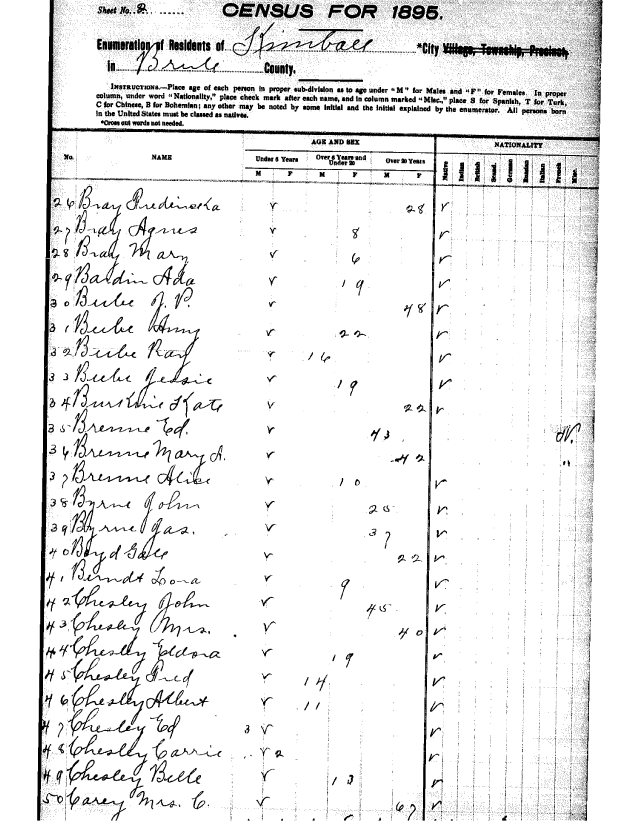 Sheet No. 2.
CENSUS FOR 1895.
Enumeration of Residents of Kimball *City Village, Township, Precinct,
in Brule County.
INSTRUCTIONS.—Place age of each person in proper sub-division as to age under "M" for Males and "F" for Females. In proper
column, under word "Nationality," place check mark after each name, and in column marked "Misc.," place S for Spanish, T for Turk,
C for Chinese, B for Bohemian; any other may be noted by some initial and the initial explained by the enumerator. All persons born
in the United States must be classed as natives.
*Cross out words not needed.
AGE AND SEX NATIONALITY
No. NAME Under 6 Years Over 6 Years and Under 20 Over 20 Years Native Indian British Scand. German Russian Italian French Misc.
M F M F M F
26 Bray Fredericka 28
27 Bray Agnes 8
28 Bray Mary 6
29 Bardin Ada 19
30 Beebe J. P. 48
31 Beebe 22
32 Beebe Ray 16
33 Beebe Jessie 19
34 Kate 22
35 Brenne Ed. 43
36 Brenne Mary A. 42 "
37 Brenne Alice 10
38 Byrne John 25
39 Byrne Jas. 37
40 Boyd Gale 22
41 Berndt Lora 9
42 Chesley John 45
43 Chesley Mrs. 40
44 Chesley Eldora 19
45 Chesley Fred 14
46 Chesley Albert 11
47 Chesley Ed 3
48 Chesley Carrie 2
49 Chesley Belle 13
50 Carey Mrs. C. 67